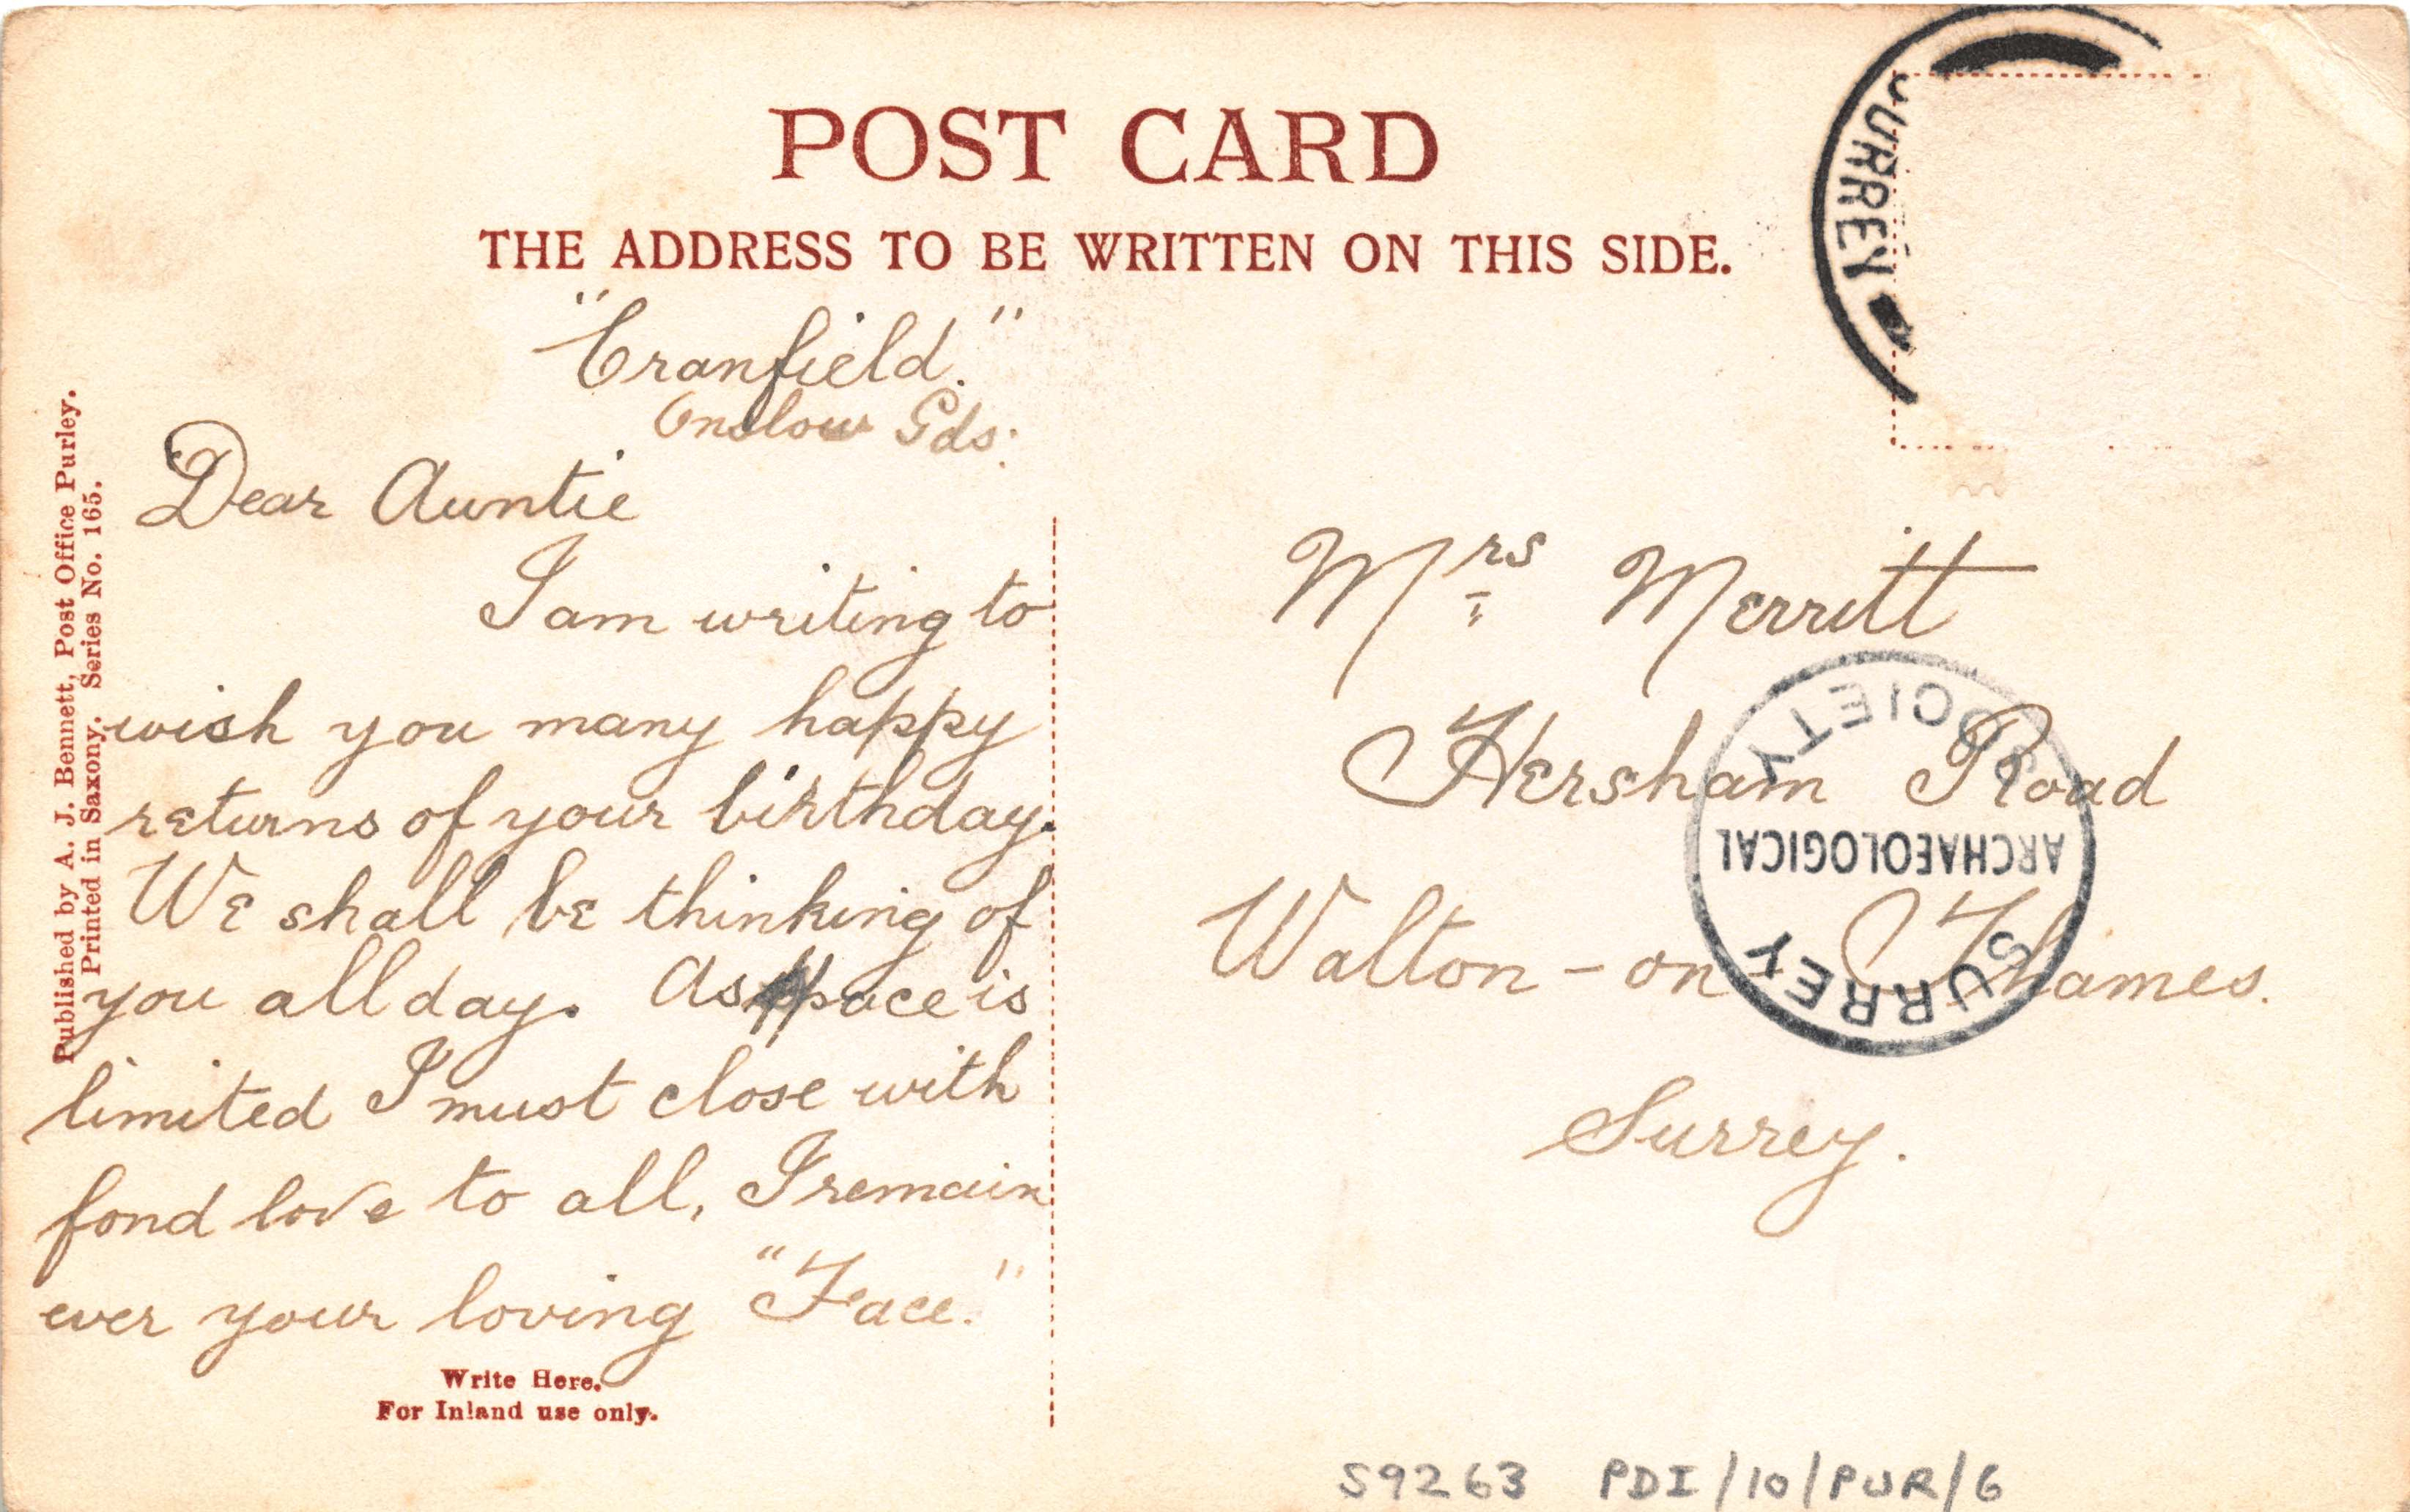 POST CARD
THE ADDRESS TO BE WRITTEN ON THIS SIDE.
SURREY
"Cranfield."
Onslow Gds:
Dear Auntie
I am writing to
wish you many happy
returns of your birthday.
We shall be thinking of
you all day. As space is
limited I must close with
fond love to all, I remain
ever your loving "Face."
Write Here.
For Inland use only.
Published by A. J. Bennett, Post Office Purley.
Printed in Saxony. Series No. 165.
Mrs Merritt
Hersham Road
Walton-on Thames.
Surrey.
SURREY
ARCHAEOLOGICAL
SOCIETY
S9263 PDI/10/PUR/6